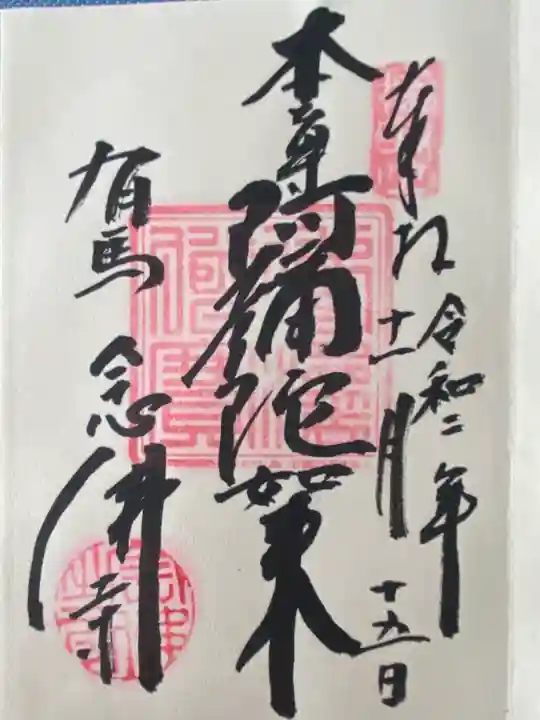 奉拝
令和二年
十一月
十九日
本尊
阿彌陀如来
有馬
念佛寺